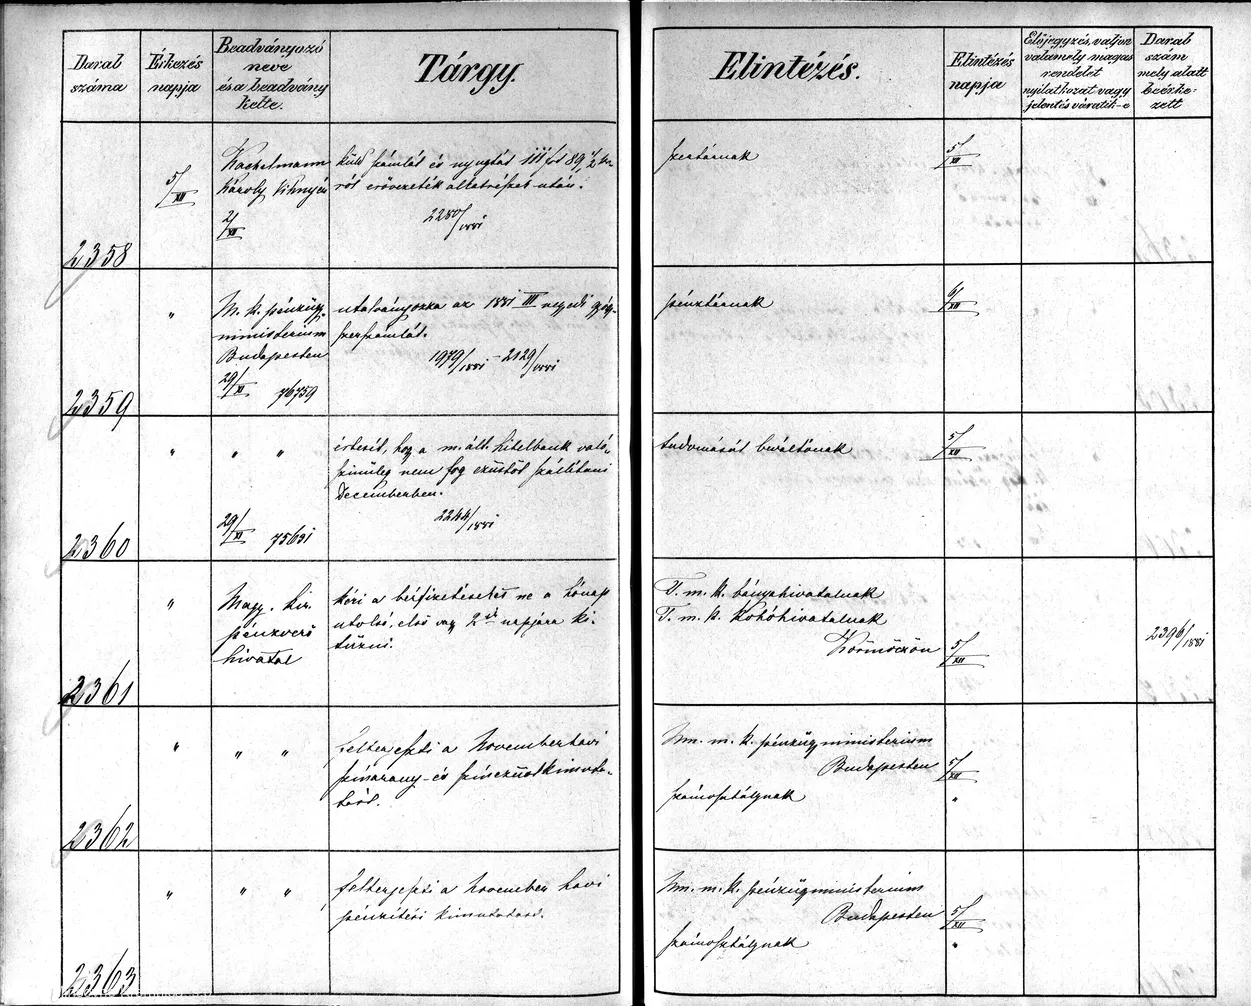 Darab száma
Érkezés napja
Beadványozó neve és a beadvány kelte.
Tárgy
Elintézés.
Elintézés napja
Előjegyzés, valjon valamely magas rendelet nyilatkozat vagy jelentés váratik-e
Darab szám mely alatt beérkezett
2358
5/XII
Károly
2/XII
küld számlát és nyugtát 111 frt 89 1/2 kr-
ról
2280/1881
5/XII
2359
"
M. k. pénzügy-
ministerium
Budapesten
29/XI 76759
utalványozza az 1881 III negyedi
1979/1881 - 2129/1881
pénztárnak
6/XII
2360
"
" "
29/XI 75631
értesit, hogy a m. ált. hitelbank való-
szinüleg nem fog ezüstöt szállítani
Decemberben.
2244/1881
tudomását beváltónak
5/XII
2361
"
Magy. kir.
pénzverő
hivatal
kéri a béfizetéseket ne a hónap
utolsó, első vagy 2ik napjára ki-
tüzni.
T. m. k. bányahivatalnak
T. m. k. kohóhivatalnak
Körmöczön
5/XII
2396/1881
2362
"
" "
felterjeszti a November havi
színarany- és színezüst kimuta-
tást.
Nm. m. k. pénzügyministerium
Budapesten
5/XII
számosztálynak
"
2363
"
" "
felterjeszti a November havi
kimutatást.
Nm. m. k. pénzügyministerium
Budapesten
5/XII
számosztálynak
"